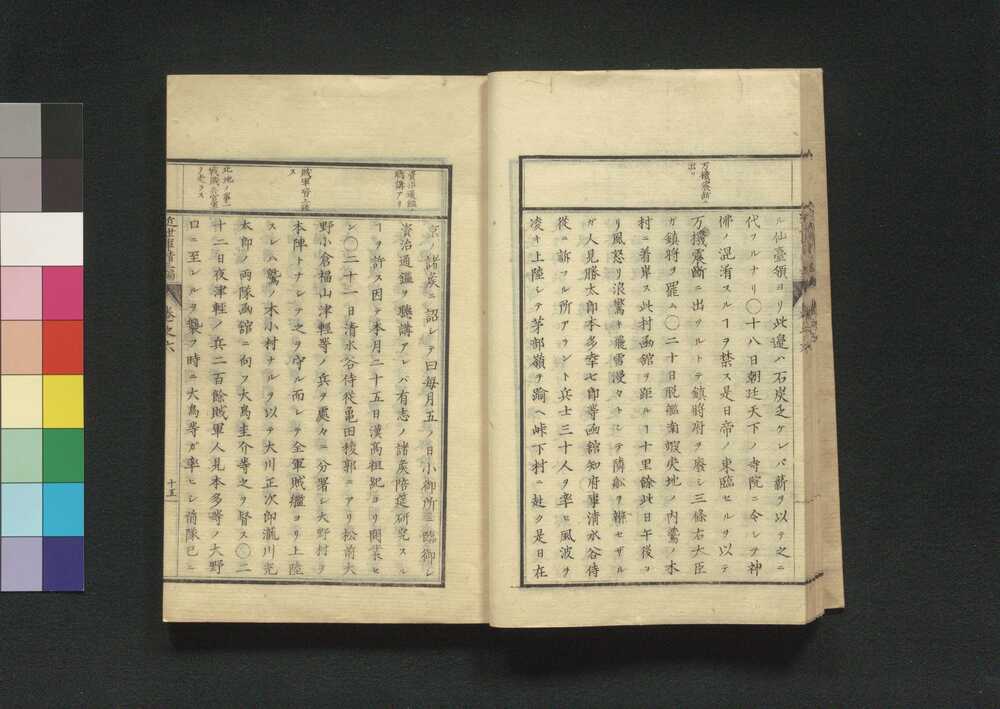 万機宸断ニ
出ツ
ル仙臺領ヨリ此邊ハ石炭乏ケレバ薪ヲ以テ之ニ
代フルナリ〇十八日朝廷天下ノ寺院ニ令シテ神
佛ノ混淆スルヿヲ禁ス是日帝ノ東臨セルヲ以テ
万機宸断ニ出ヅルトテ鎮將府ヲ廢シ三條右大臣
ガ鎮將ヲ罷ム〇二十日脱艦南蝦夷地ノ内鷲ノ木
村ニ着岸ス此村函館ヲ距ルヿ十里餘此日午後ヨ
リ風怒リ浪驚キ飛雪漫々トシテ隣舩ヲ辨セザル
ガ人見勝太郎本多幸七郎等函舘知府事清水谷侍
從ニ訴フル所アラント兵士三十人ヲ率ヒ風波ヲ
凌キ上陸シテ茅部嶺ヲ踰ヘ峠下村ニ赴ク是日在
資治通鑑ノ
聴講アリ
賊軍皆上陸
ス
北地ノ第一
戦賊兵官軍
ヲ走ラス
京ノ諸矦ニ詔シテ曰毎月五ノ日小御所ニ臨御シ
資治通鑑ヲ聴講アレバ有志ノ諸矦陪莚研究スル
ヿヲ許ス因テ本月二十五日漢高祖紀ヨリ開業セ
シ〇二十一日清水谷侍従亀田稜郭ニアリ松前大
野小倉福山津輕等ノ兵ヲ處々ニ分署シ大野村ヲ
本陣トナシテ之ヲ守ル而シテ全軍賊艦ヨリ上陸
スレハ鷲ノ木小村ナルヲ以テ大川正次郎瀧川充
太郎ノ両隊函舘ニ向フ大鳥圭介等之ヲ督ス〇二
十二日夜津輕ノ兵二百餘賊軍人見本多等ノ大野
口ニ至レルヲ襲フ時ニ大鳥等ガ率ヒシ前隊已ニ
近世軍情二編
巻之六
十五